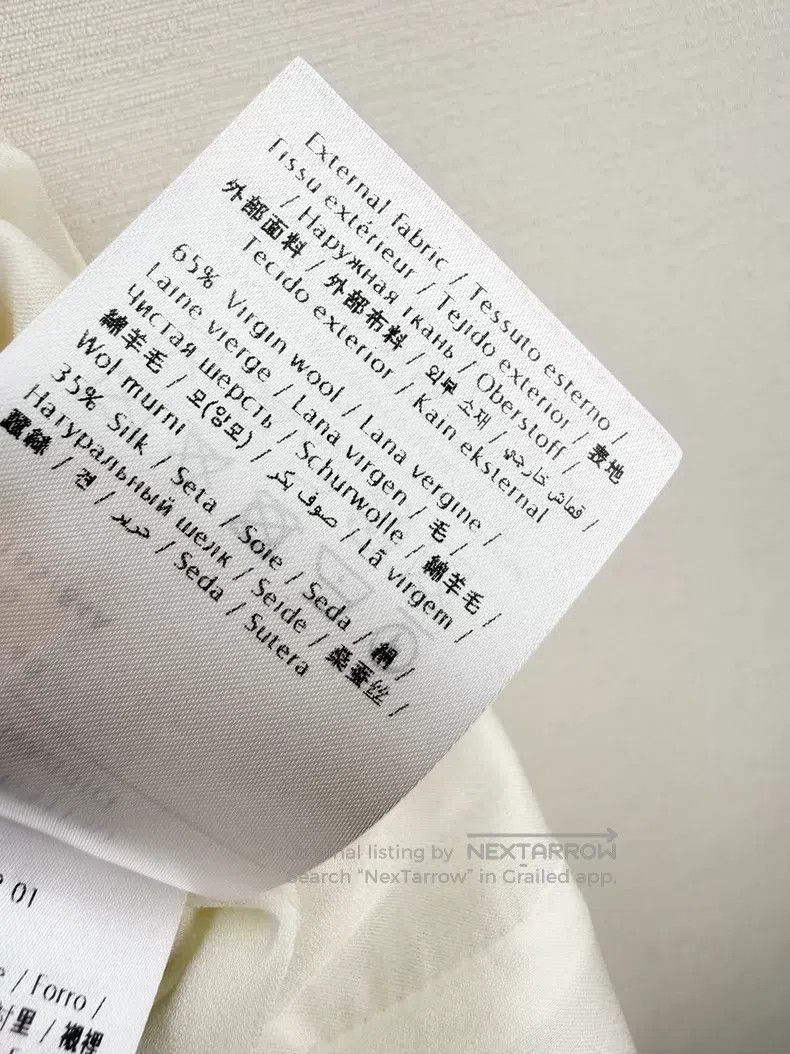 External fabric / Tessuto esterno /
Tissu extérieur / Tejido exterior / 表地
/ Наружная ткань / Oberstoff /
外部面料 / 外部布料 / 외부 소재 / قماش خارجي /
Tecido exterior / Kain eksternal
65% Virgin wool / Lana vergine /
Laine vierge / Lana virgen / 毛 /
Чистая шерсть / Schurwolle / 綿羊毛 /
綿羊毛 / 모(양모) / صوف بكر / Lã virgem /
Wol murni
35% Silk / Seta / Soie / Seda / 絹 /
Натуральный шелк / Seide / 桑蚕丝 /
蠶絲 / 견 / حرير / Seda / Sutera
01
/ Forro /
衬里 / 襯裡
listing by NEXTARROW
Search “NexTarrow” in Grailed app.